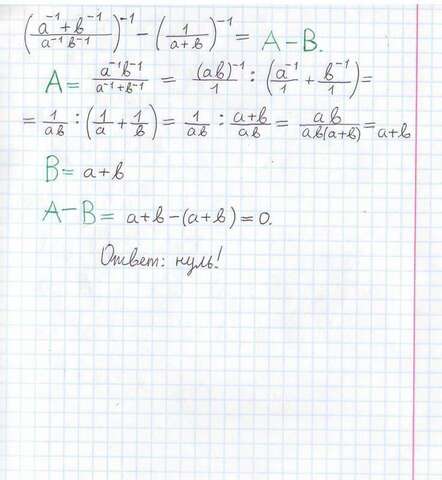 (\frac{a^{-1}+b^{-1}}{a^{-1}b^{-1}})^{-1} - (\frac{1}{a+b})^{-1} = A-B.
A = \frac{a^{-1}b^{-1}}{a^{-1}+b^{-1}} = \frac{(ab)^{-1}}{1} : (\frac{a^{-1}}{1} + \frac{b^{-1}}{1}) =
= \frac{1}{ab} : (\frac{1}{a} + \frac{1}{b}) = \frac{1}{ab} : \frac{a+b}{ab} = \frac{ab}{ab(a+b)} = a+b
B = a+b
A-B = a+b-(a+b) = 0.
Ответ: нуль!